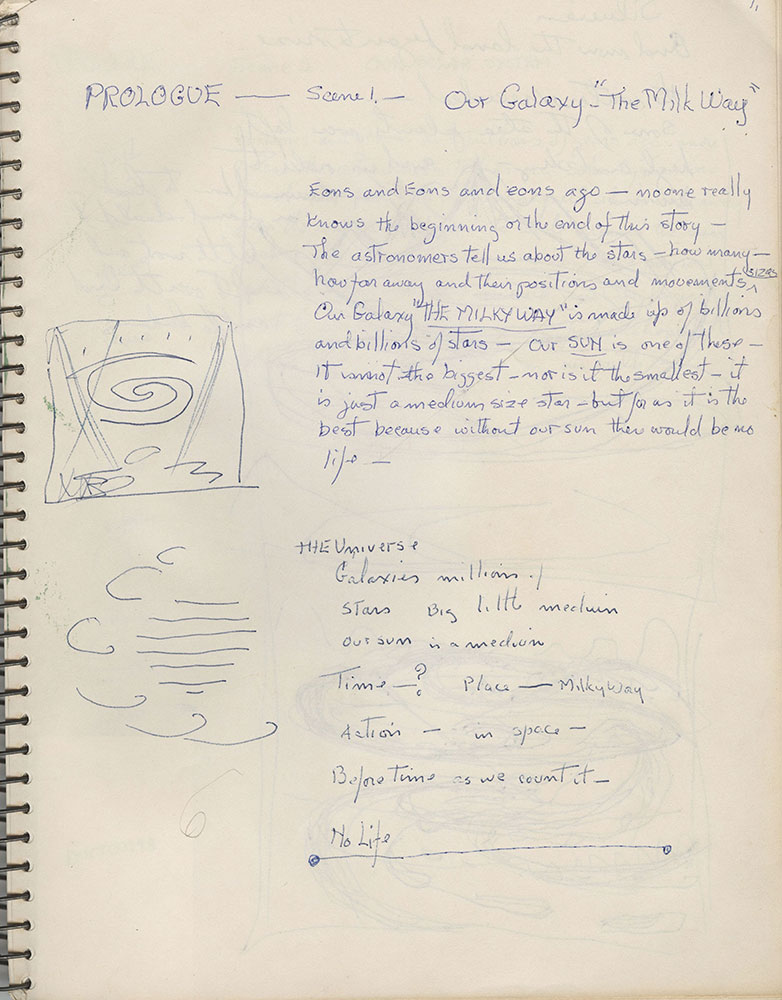 PROLOGUE — Scene 1. — Our Galaxy - "The Milk Way"
Eons and Eons and eons ago — no one really
knows the beginning or the end of this story —
The astronomers tell us about the stars — how many —
how far away and their positions and movements, sizes
Our Galaxy "THE MILKY WAY" is made up of billions
and billions of stars — our SUN is one of these —
It is not the biggest — nor is it the smallest — it
is just a medium size star — but for us it is the
best because without our sun there would be no
life —
THE Universe
Galaxies millions of
stars Big little medium
our sun is a medium
Time — ? Place — Milky Way
Action — in space —
Before Time as we count it —
No Life
6